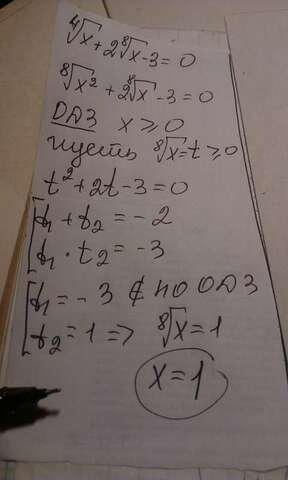 ⁴√x + 2⁸√x - 3 = 0
⁸√x² + 2⁸√x - 3 = 0
ОДЗ x ≥ 0
пусть ⁸√x = t ≥ 0
t² + 2t - 3 = 0
t₁ + t₂ = -2
t₁ · t₂ = -3
t₁ = -3 ∉ по ОДЗ
t₂ = 1 => ⁸√x = 1
x = 1